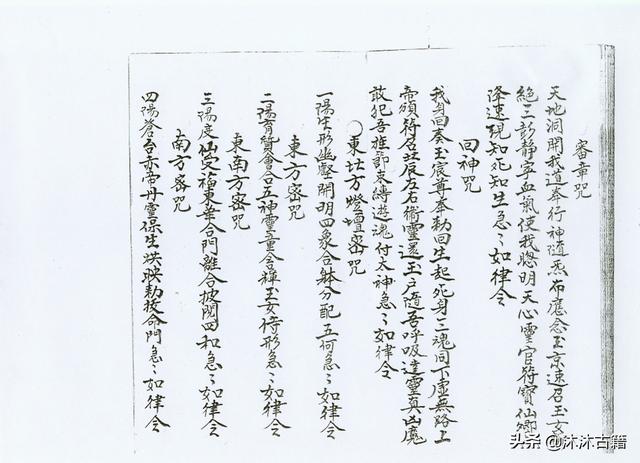 審章咒
天地洞開我道奉行神隨炁布應念玉京速召玉女
絕三彭靜字血氣使我聰明天心靈官符寶仙卿
降速現知死知生急〻如律令
回神咒
我身回奏玉宸尊奉勅回生起死身三魂同下虛無路上
帝頒符召北辰左右衛靈還玉户隨吾呼吸達靈真凶魔
敢犯吾推即束縛遊魂付太神急〻如律令
○東北方燈壇密咒
一陽生形幽壑開明四象合躰分配五何急〻如律令
東方密咒
二陽育質會合五神靈童合輝玉女侍形急〻如律令
東南方密咒
三陽度仙受福東華合門離合披閱四和急〻如律令
南方密咒
四陽蒼台赤帝丹靈保生映勅救命門急〻如律令
头条@沐沐古籍